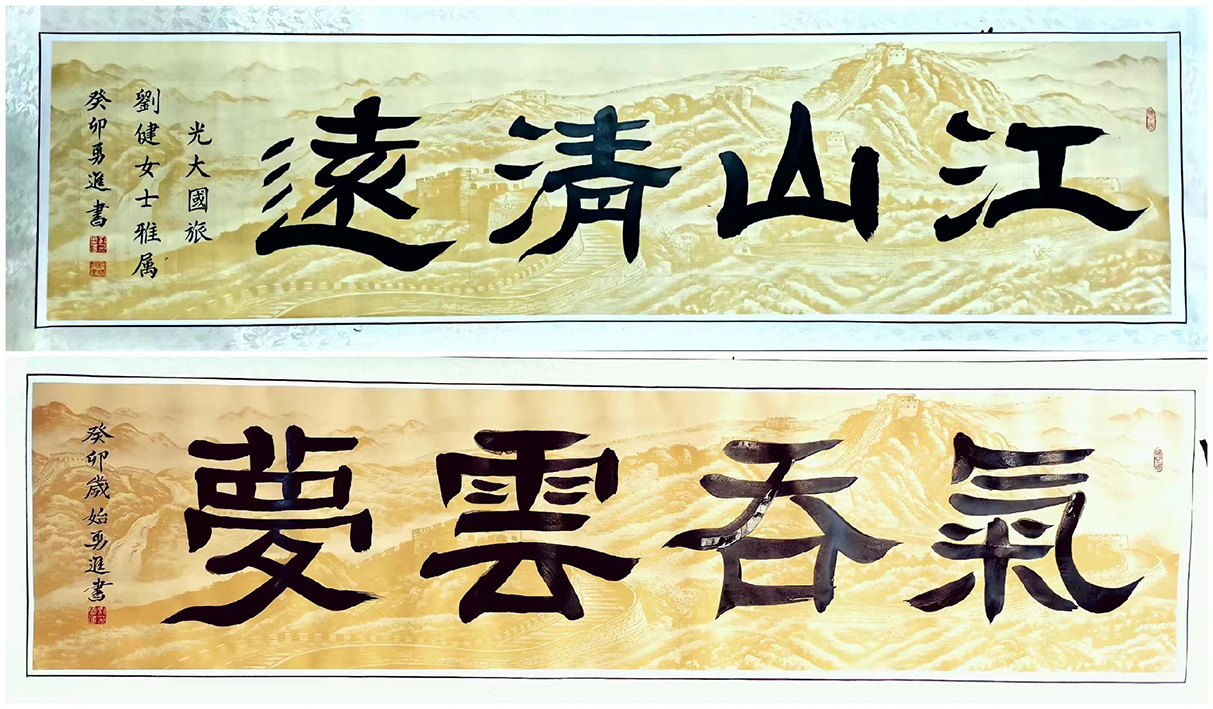 江山清遠
光大國旅
劉健女士雅属
癸卯勇進書
氣吞雲夢
癸卯歲始勇進書